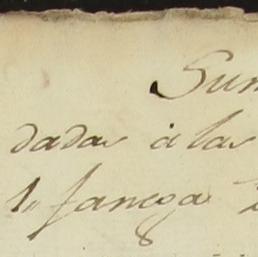 Sum
dadas á las
1„ fanega